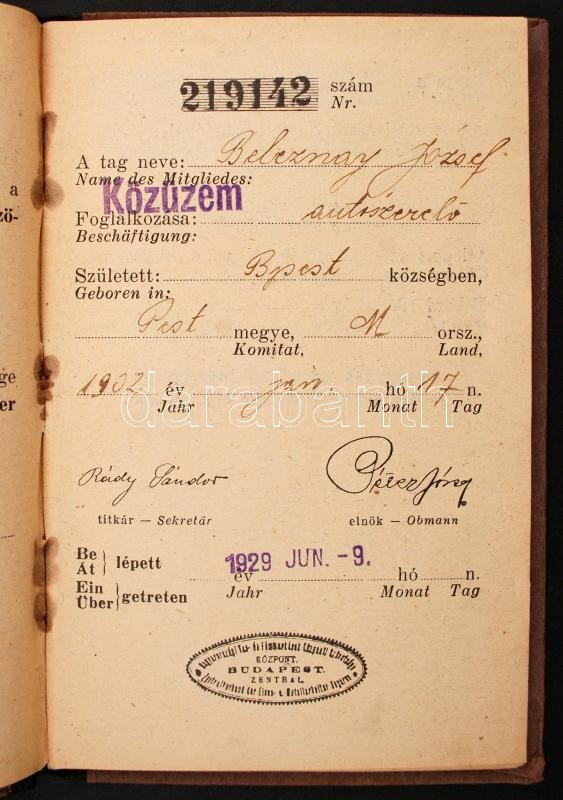 219142 szám
Nr.
A tag neve: Beleznay József
Name des Mitgliedes:
Közüzem
Foglalkozása: autószerelő
Beschäftigung:
Született: Bpest községben,
Geboren in:
Pest megye, M orsz.,
Komitat, Land,
1902 év jan. hó 17 n.
Jahr Monat Tag
darabanth
Rády Sándor
titkár — Sekretär elnök — Obmann
Be
Át lépett 1929 JUN. -9. év hó n.
Ein
Über getreten Jahr Monat Tag
KÖZPONT.
BUDAPEST.
ZENTRAL
a
zö-
ge
er